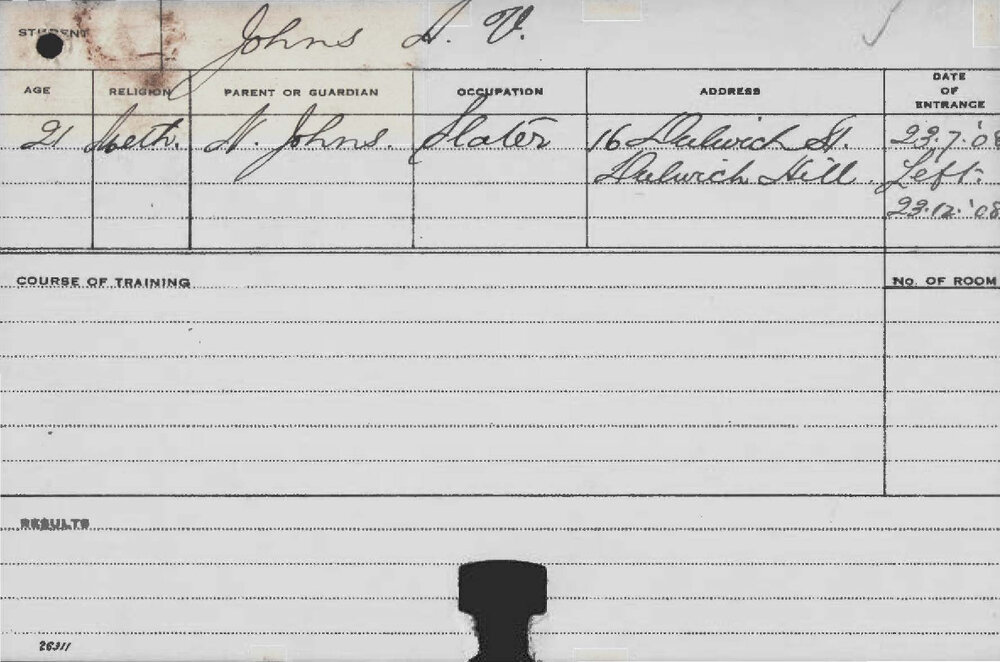 STUDENT Johns A. V.
AGE RELIGION PARENT OR GUARDIAN OCCUPATION ADDRESS DATE OF ENTRANCE
21 Meth. N. Johns. Slater 16 Dulwich St. 22.7.'08
Dulwich Hill. Left.
23.12.'08
COURSE OF TRAINING No. OF ROOM
RESULTS
26311